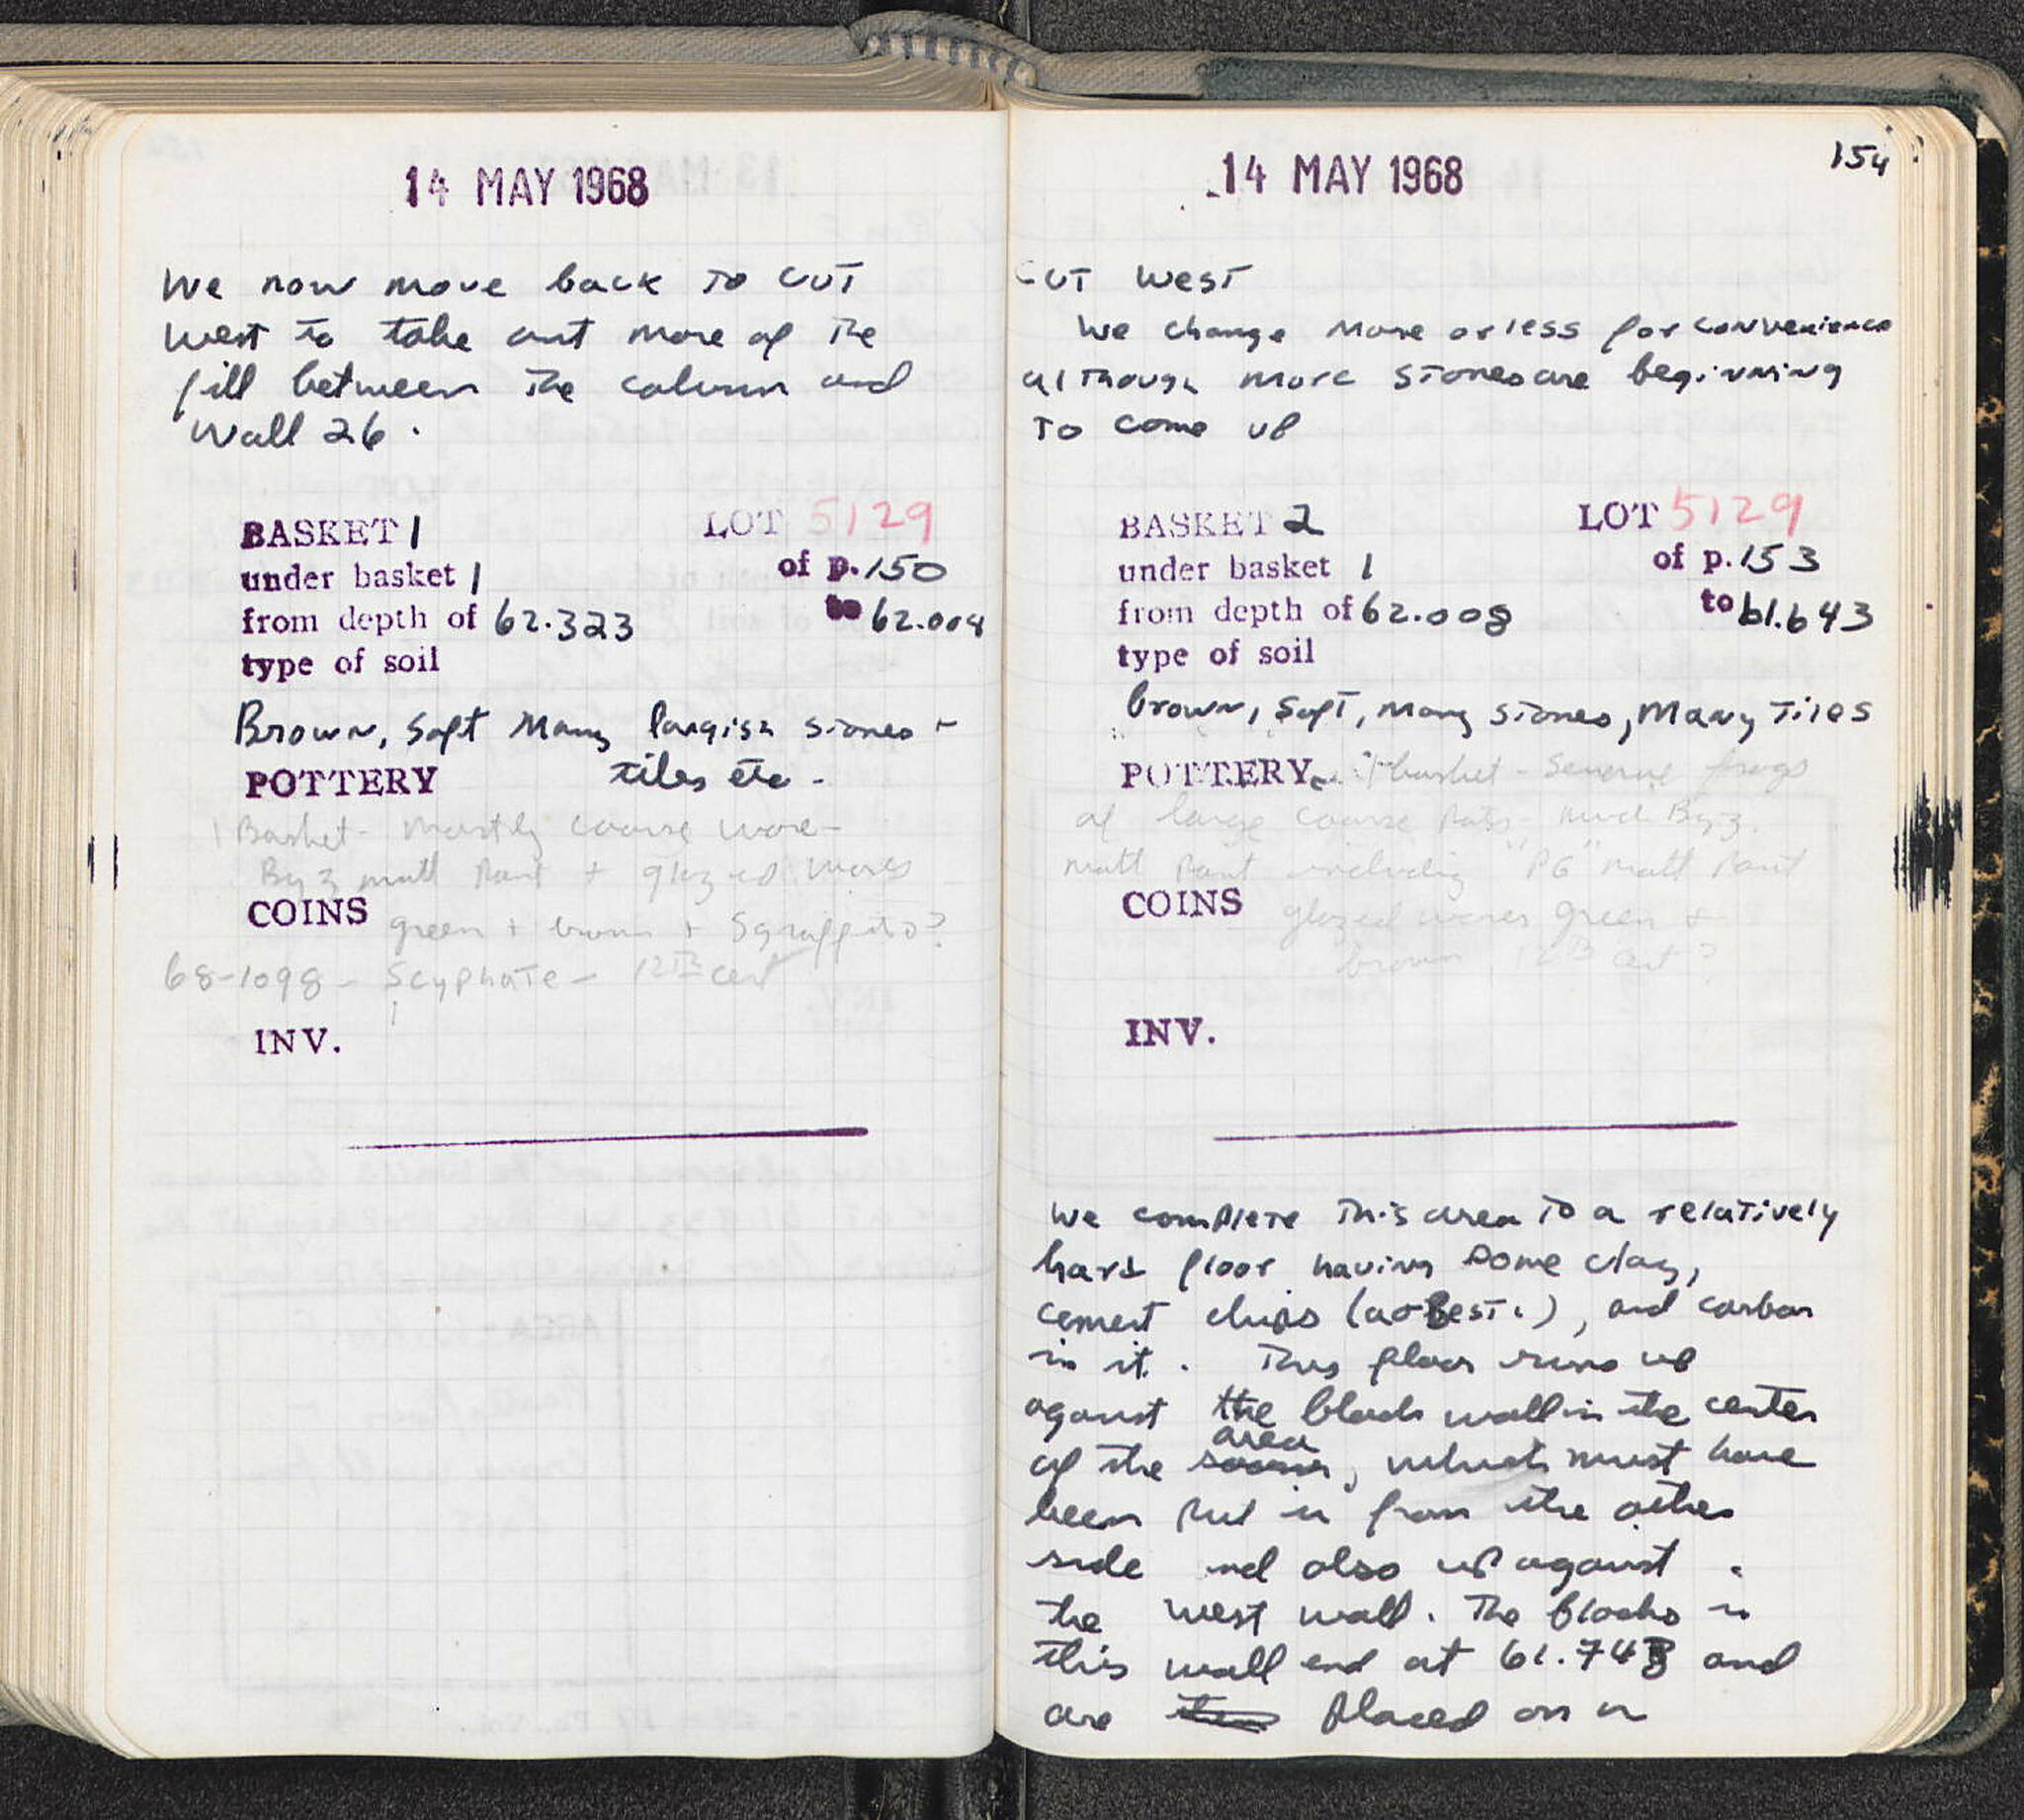 14 MAY 1968
We now move back to CUT
West to take out more of the
fill between the column and
Wall 26.
BASKET 1 LOT 5129
under basket 1 of p. 150
from depth of 62.323 to 62.008
type of soil
Brown, soft many largish stones +
POTTERY tiles etc -
1 Basket - mostly coarse ware -
Byz matt paint + glazed wares
COINS green + brown + Sgraffito?
68-1098 - Scyphate - 12TH cent
INV.
154
14 MAY 1968
CUT West
We change more or less for convenience
although more stones are beginning
to come up
BASKET 2 LOT 5129
under basket 1 of p. 153
from depth of 62.008 to 61.643
type of soil
brown, soft, many stones, many tiles
POTTERY basket - Several frags
of large coarse pots, much Byz.
matt paint including "PG" matt paint
COINS glazed wares green +
brown 12th cent?
INV.
We complete this area to a relatively
hard floor having some clay,
cement chips , and carbon
in it. This floor runs up
against the block wall in the center
of the room area, which must have
been put in from the other
side and also up against
the west wall. The blocks in
this wall end at 61.743 and
are placed on a